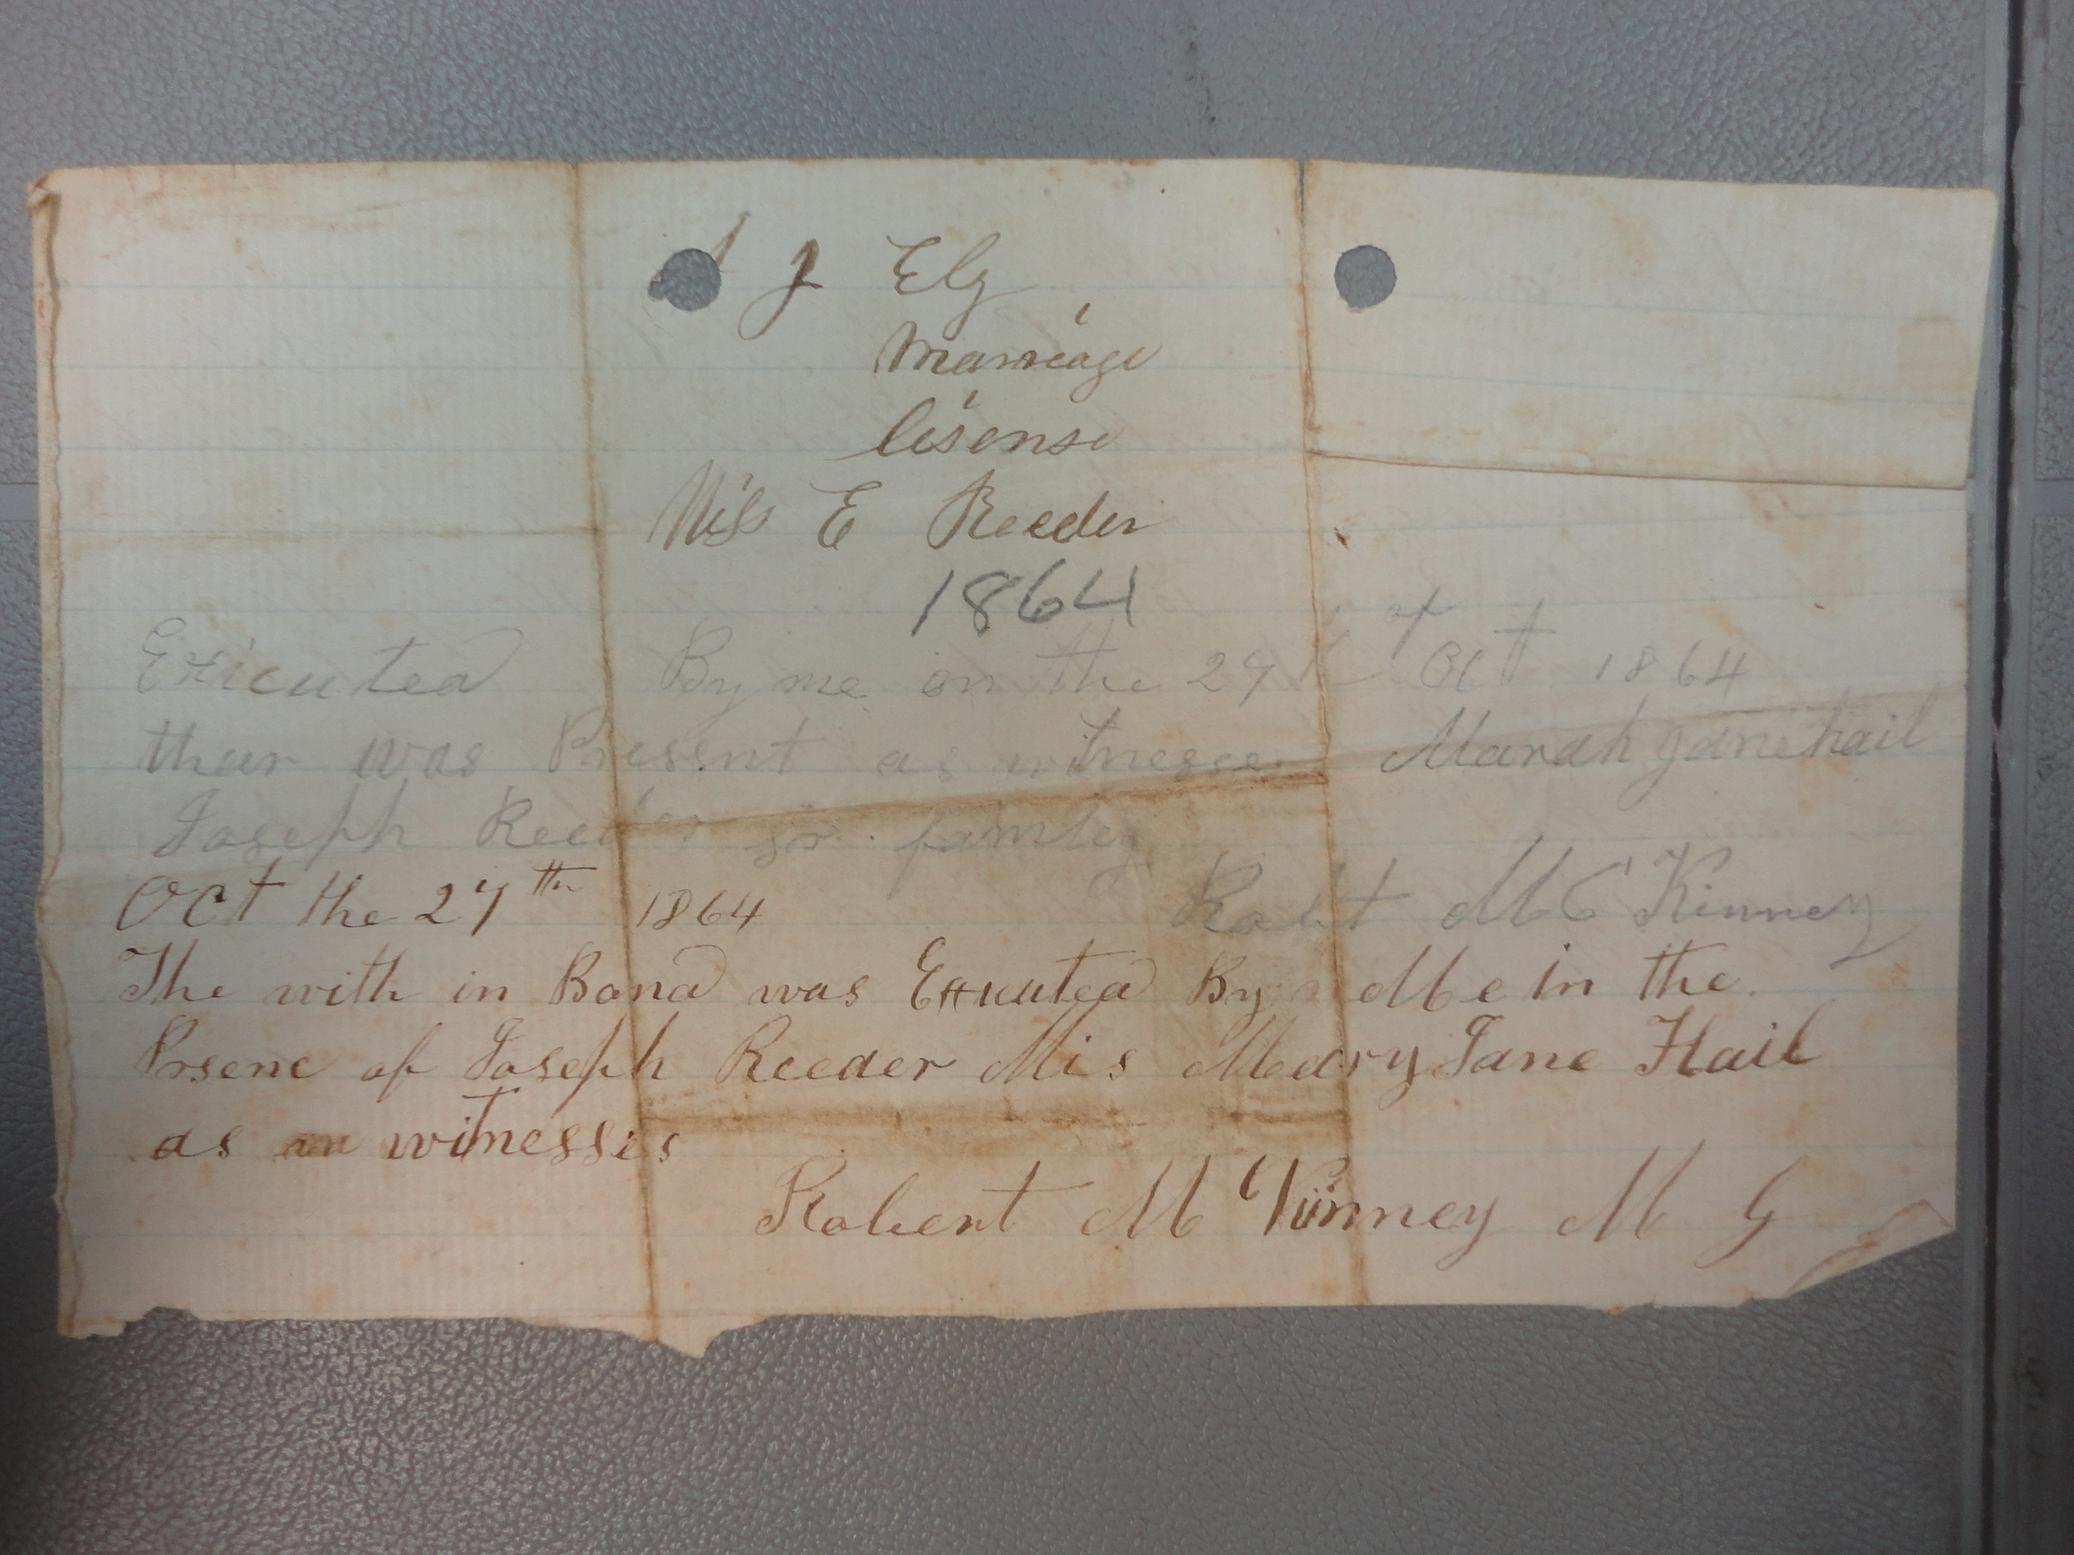 J Ely
Marriage
lisense
Miss E Reeder
1864
Exicuted By me on the 27th of Oct 1864
thear was Present as witnesses Marah Jane hail
Joseph Reeder sr. famley
Robt Mc Kinney
Oct the 27th 1864
The with in Bond was Exicuted By Me in the
Prsenc of Joseph Reeder Mis Meary Jane Hail
as witnesses
Robert McKinney M G